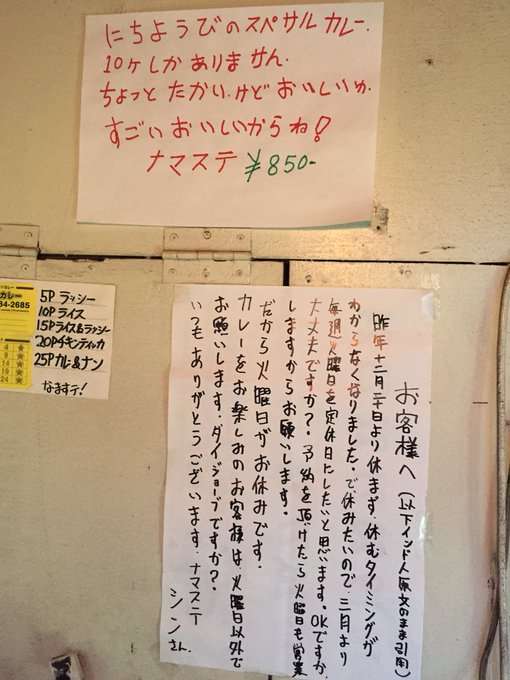 にちようびのスペサルカレー.
10ケしかありません.
ちょっとたかい.けどおいしいか.
すごいおいしいからね!
ナマステ ¥850-
84-2685
4 ★
9 ★
14 ★
19 ★
24 ★
5P ラッシー
10P ライス
15P ライス&ラッシー
20P チキンティッカ
25P カレー&ナン
なますテ!
お客様へ(以下インド人原文のまま引用)
昨年十二月二十日より休まず.休むタイミングが
わからなくなりました.で休みたいので.三月より
毎週火曜日を定休日にしたいと思います。OKですか.
大丈夫ですか?.予約を頂けたら火曜日も営業
しますからお願いします.
だから火曜日がお休みです.
カレーをお楽しみのお客様は火曜日以外で
お願いします.ダイジョーブですか?.
いつもありがとうございます.ナマステ
シンさん.